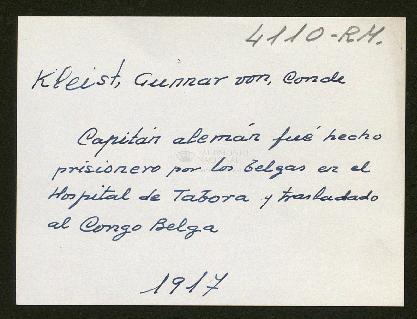 4110-RM.
Kleist, Gunnar von, Conde
Capitán alemán fué hecho
prisionero por los belgas en el
Hospital de Tabora y trasladado
al Congo Belga
1917